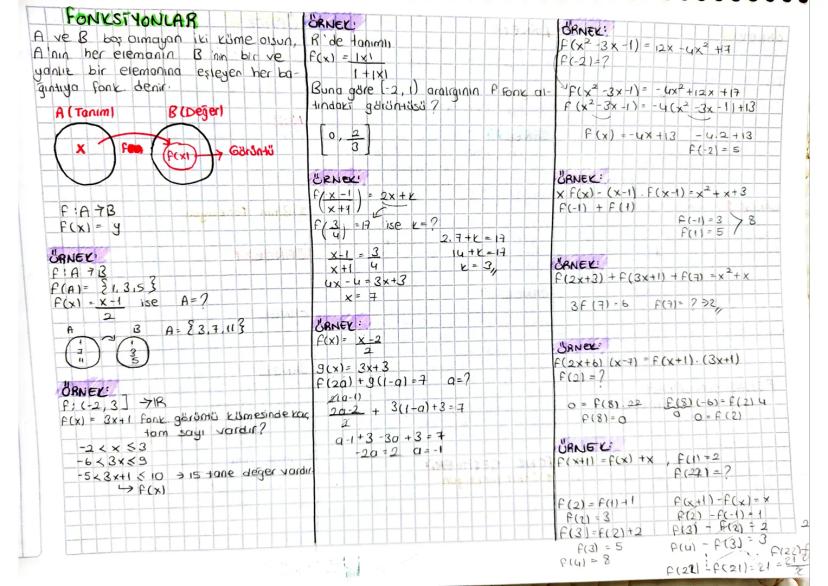 FONKSİYONLAR
A ve B boş olmayan iki küme olsun,
A'nın her elemanın B'nin bir ve
yanlız bir elemanına eşleyen her ba-
ğıntıya fonk denir.
A(Tanım) B(Değer)
x f(x) → Görüntü
f: A → B
f(x) = y
ÖRNEK:
f: A → B
f(A) = {1,3,5}
f(x) = x-1 ise A=?
2
A B A = {3,7,11}
3 1
7 3
11 5
ÖRNEK:
f: (-2,3] → IR
f(x) = 3x+1 fonk görüntü kümesinde kaç
tam sayı vardır?
-2 < x ≤ 3
-6 < 3x ≤ 9
-5 < 3x+1 ≤ 10 → 15 tane değer vardır
↳ f(x)
ÖRNEK:
R'de tanımlı
f(x) = |x|
1+|x|
Buna göre [-2, 1) aralığının f fonk al-
tındaki görüntüsü?
[0, 2/3]
ÖRNEK:
f(x-1/x+1) = 2x+k
f(3/4) = 17 ise k=?
x-1 = 3
x+1 4
4x-4 = 3x+3
x = 7
2.7+k = 17
14+k = 17
k = 3
ÖRNEK:
f(x) = x-2
2
g(x) = 3x+3
f(2a) + g(1-a) = 7 a=?
2(a-1)
2a-2 + 3(1-a)+3 = 7
2
a-1+3-3a+3 = 7
-2a = 2 a = -1
ÖRNEK:
f(x²-3x-1) = 12x-4x²+17
f(-2) = ?
f(x²-3x-1) = -4x²+12x+17
f(x²-3x-1) = -4(x²-3x-1)+13
f(x) = -4x+13 -4.2+13
f(-2) = 5
ÖRNEK:
x.f(x) - (x-1).f(x-1) = x²+x+3
f(-1) + f(1)
f(-1) = 3
f(1) = 5 > 8
ÖRNEK:
f(2x+3) + f(3x+1) + f(7) = x²+x
3f(7) = 6 f(7) = ? → 2
ÖRNEK:
f(2x+6)(x-7) = f(x+1).(3x+1)
f(2) = ?
0 = f(8).22 f(8)(-6) = f(2).4
f(8) = 0 0 0 = f(2)
ÖRNEK:
f(x+1) = f(x) + x, f(1) = 2
f(22) = ?
f(2) = f(1)+1
f(2) = 3
f(3) = f(2)+2
f(3) = 5
f(4) = 8
f(x+1) - f(x) = x
f(2) - f(1) = 1
f(3) - f(2) = 2
f(4) - f(3) = 3
f(22) - f(21) = 21